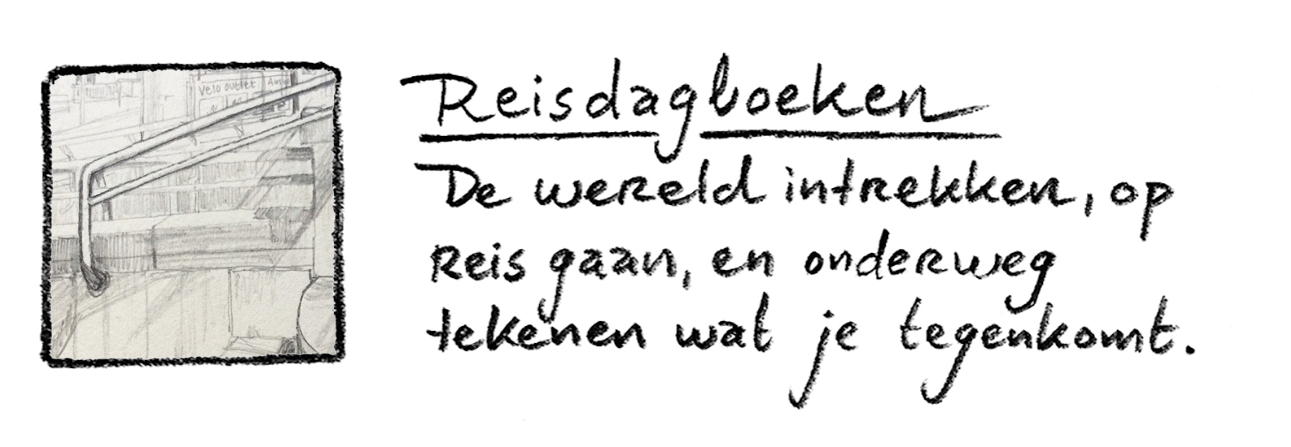 Velo outlet
Reisdagboeken
De wereld intrekken, op
Reis gaan, en onderweg
tekenen wat je tegenkomt.